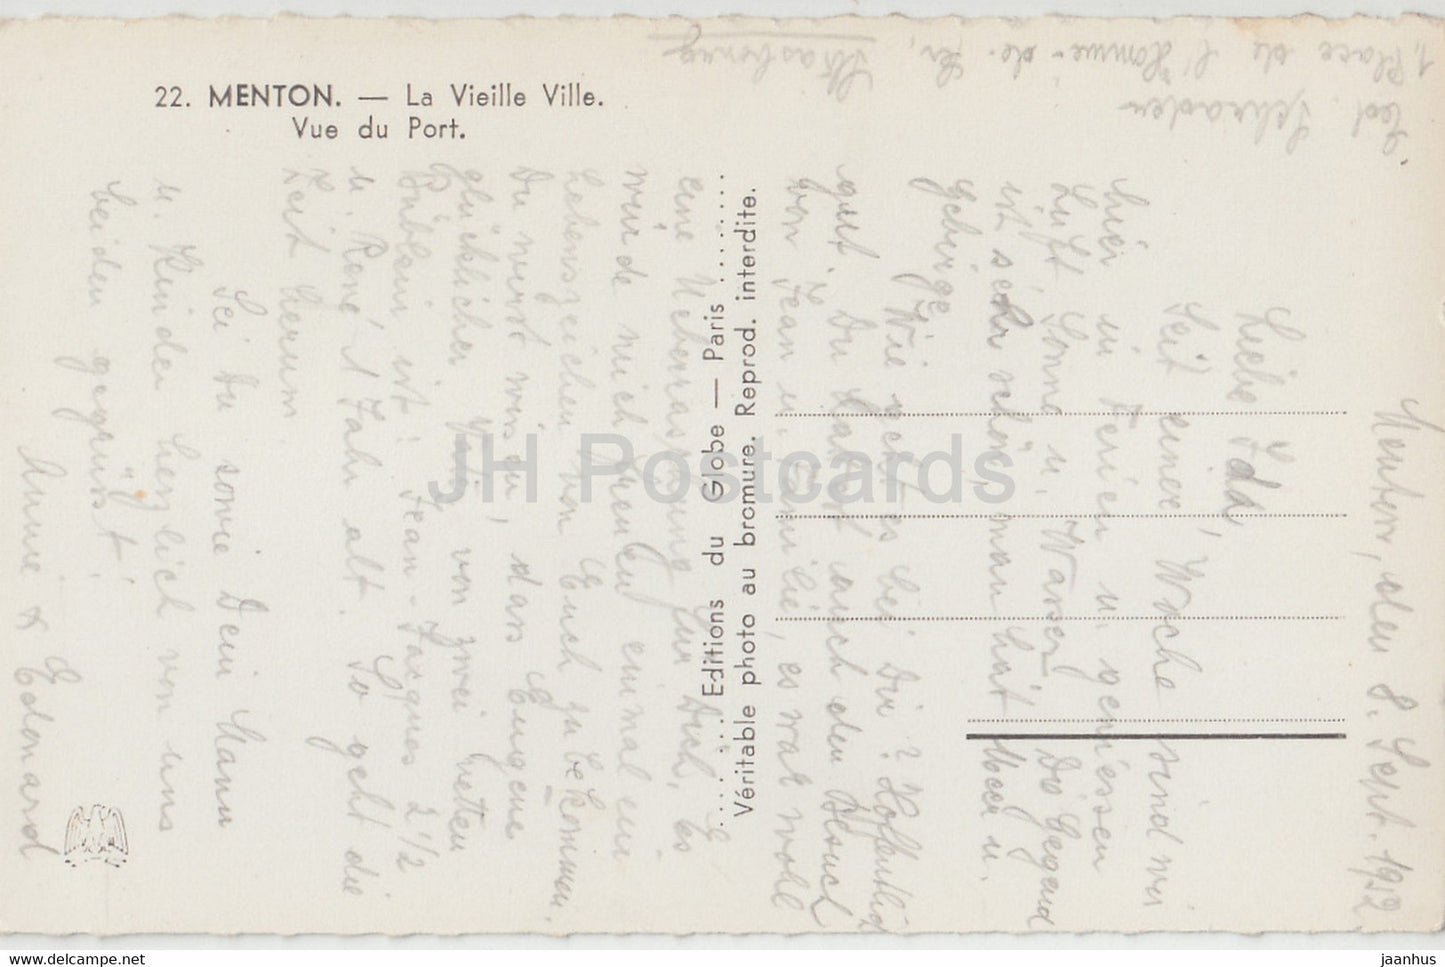 22. MENTON. — La Vieille Ville.
Vue du Port.
Editions du Globe — Paris
Véritable photo au bromure. Reprod. interdite.
Ed. Schrader
1, Place de l'Homme-de-fer, Strasbourg
Menton, den 8. Sept. 1952
Liebe Ida,
Seit einer Woche sind wir
hier in Ferien u. geniessen
Luft, Sonne u. Wasser. Die Gegend
ist sehr schön, man hat Meer u.
Gebirge.
Wie geht es bei Dir? Hoffentlich
gut. Du hattest auch den Besuch
von Jean u. Familie, es war wohl
eine Ueberraschung für Dich. Es
würde mich freuen einmal ein
Lebenszeichen von Euch zu bekommen.
Du wirst wissen, dass Eugène
glücklicher Vati von zwei netten
Büblein ist. Jean-Jacques 2 1/2
u. René 1 Jahr alt. So geht die
Zeit herum
Sei Du sowie Dein Mann
u. Kinder herzlich von uns
beiden gegrüsst.
Anne & Edouard
JH Postcards
www.hippostcard.com
jaanhus